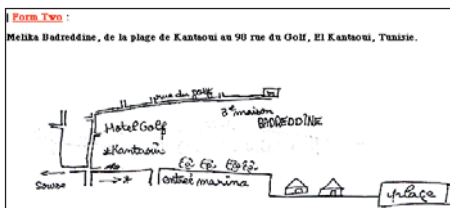 Form Two :
Melika Badreddine, de la plage de Kantaoui au 98 rue du Golf, El Kantaoui, Tunisie.
rue du golf
3e maison
BADREDDINE
Hotel Golf
Kantaoui
Sousse
entrée marina
plage